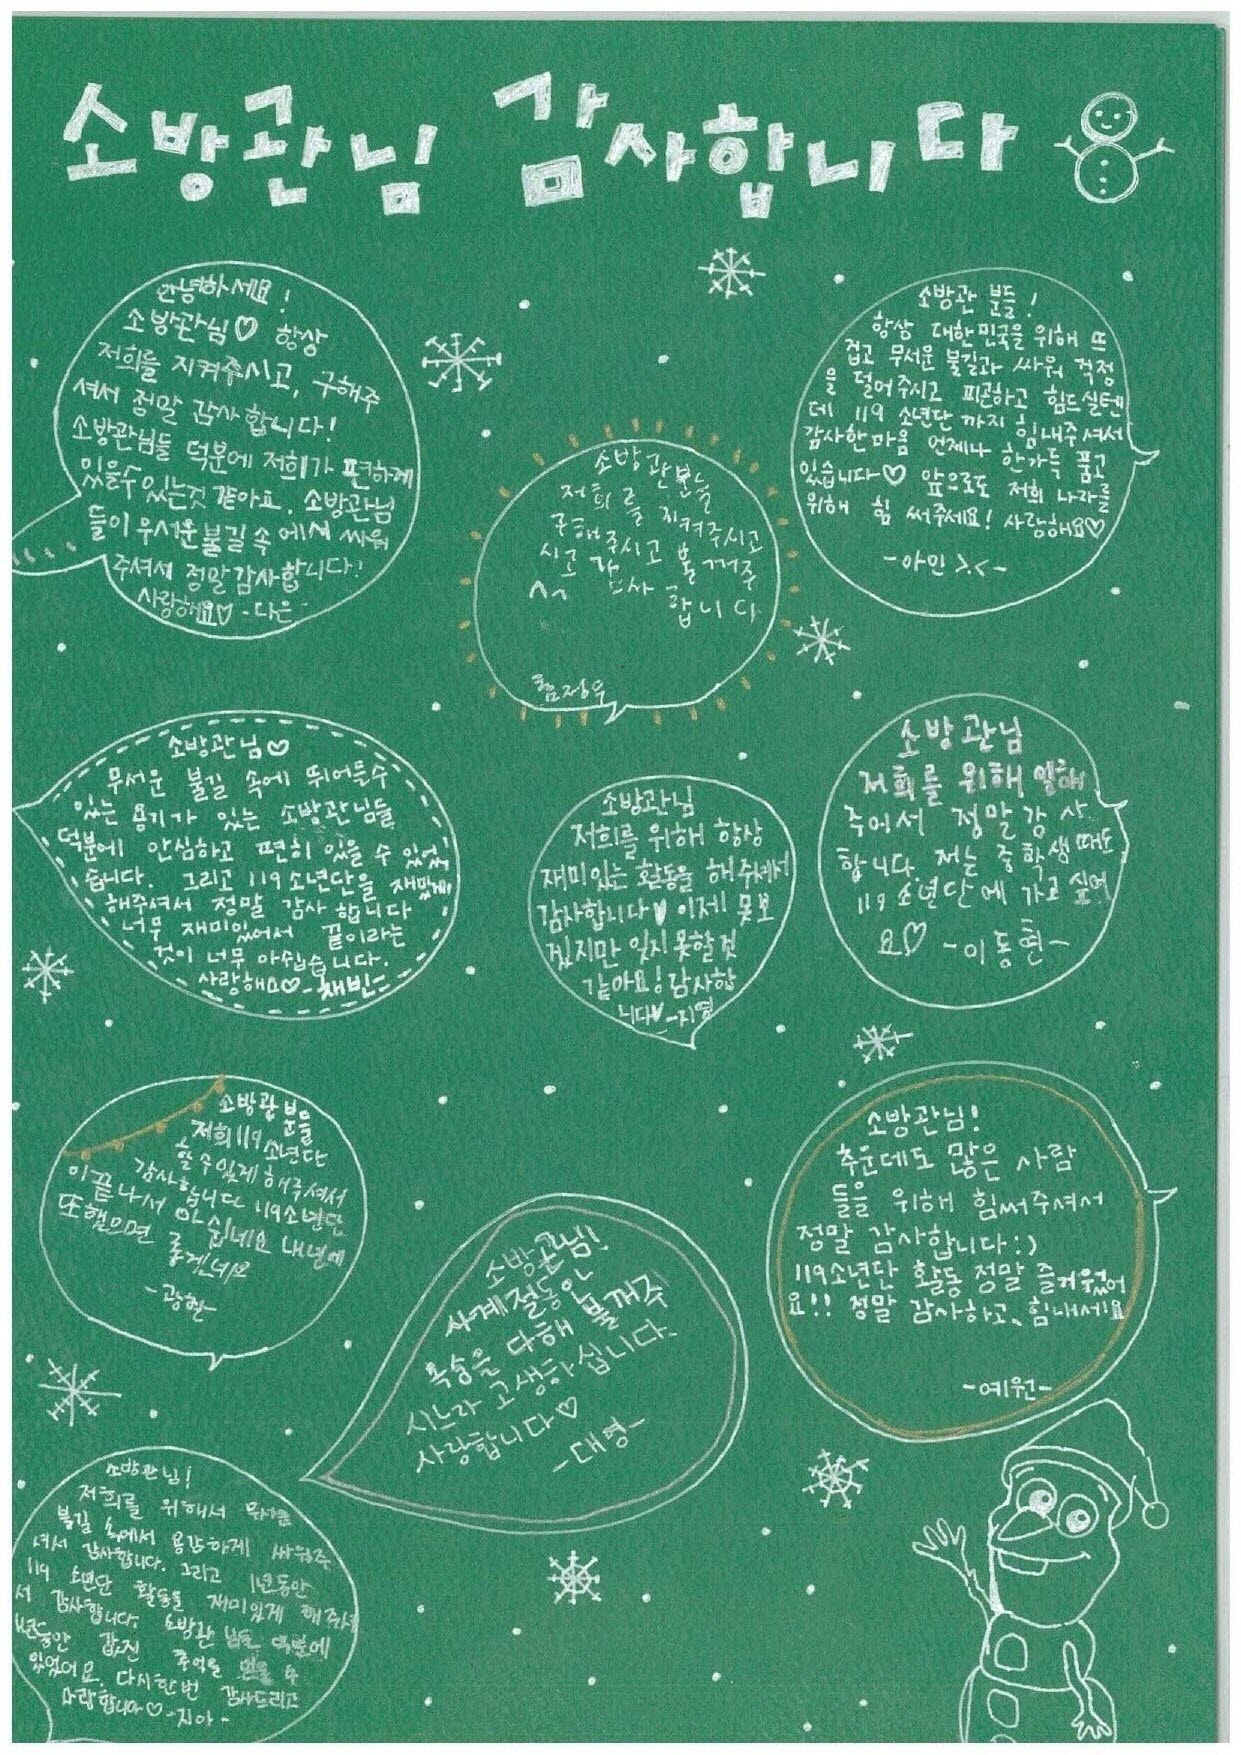 소방관님 감사합니다
안녕하세요!
소방관님♡ 항상
저희를 지켜주시고, 구해주
셔서 정말 감사합니다!
소방관님들 덕분에 저희가 편하게
있을수있는것 같아요. 소방관님
들이 무서운 불길 속에서 싸워
주셔서 정말감사합니다!
사랑해요♡ -다은-
소방관분들
저희를 지켜주시고
구해주시고 불 꺼주
시고 감사합니다
^^
함정우
소방관 분들!
항상 대한민국을 위해 뜨
겁고 무서운 불길과 싸워 걱정
을 덜어주시고 피곤하고 힘드실텐
데 119 소년단 까지 힘내주셔서
감사한마음 언제나 한가득 품고
있습니다♡ 앞으로도 저희 나라를
위해 힘 써주세요! 사랑해요♡
-아인 >.<-
소방관님♡
무서운 불길 속에 뛰어들수
있는 용기가 있는 소방관님들
덕분에 안심하고 편히 있을 수 있었
습니다. 그리고 119소년단을 재밌게
해주셔서 정말 감사합니다
너무 재미있어서 끝이라는
것이 너무 아쉽습니다.
사랑해요♡-채빈-
소방관님
저희를 위해 항상
재미있는 활동을 해주셔서
감사합니다♥ 이제 못보
겠지만 잊지 못할것
같아요! 감사합
니다♥-지영
소방관님
저희를 위해 일해
주어서 정말 감사
합니다. 저는 중학생때도
119 소년단에 가고 싶어
요♡ -이동현-
소방관분들
저희119소년단
할수있게 해주셔서
감사합니다 119소년단
이 끝나서 아쉽네요 내년에
또했으면 좋겠네요
-광현-
소방관님!
사계절동안
목숨을 다해 불꺼주
시느라 고생하십니다.
사랑합니다♡
-대영-
소방관님!
추운데도 많은 사람
들을 위해 힘써주셔서
정말 감사합니다:)
119소년단 활동 정말 즐거웠어
요!! 정말 감사하고, 힘내세요
-예원-
소방관님!
저희를 위해서
불길 속에서 용감하게 싸워주
셔서 감사합니다. 그리고 1년동안
119 소년단 활동을 재미있게 해주셔
서 감사합니다. 소방관님들 덕분에
1년동안 값진 추억을 만들 수
있었어요. 다시한번 감사드리고
사랑합니다♡-지아-